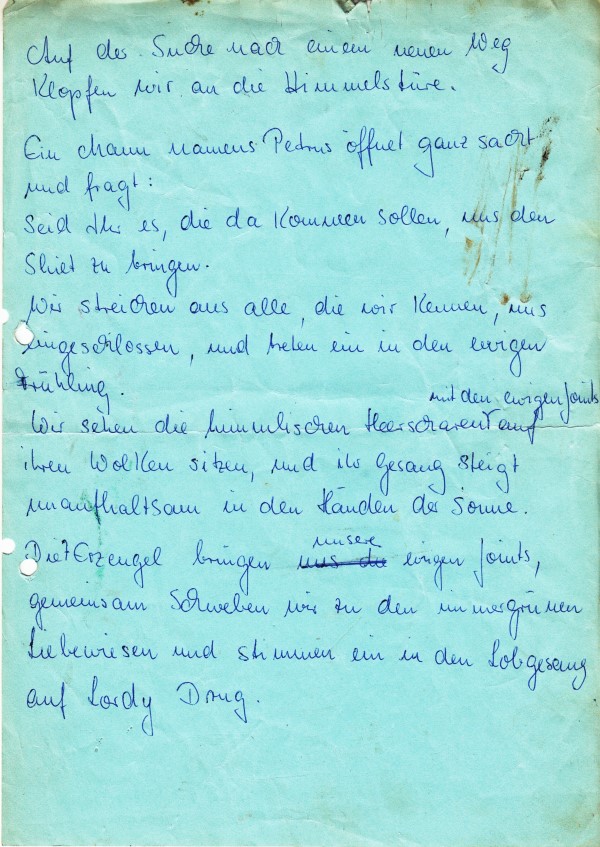 Auf der Suche nach einem neuen Weg
Klopfen wir an die Himmelstüre.
Ein Mann namens Petrus öffnet ganz sacht
und fragt:
Seid Ihr es, die da Kommen sollen, uns den
Shiet zu bringen.
Wir streichen aus alle, die wir Kennen, uns
eingeschlossen, und treten ein in den ewigen
Frühling.
mit den ewigen Joints
Wir sehen die himmlischen Heerscharen auf
ihren Wolken sitzen, und ihr Gesang steigt
unaufhaltsam in den Händen der Sonne.
unsere
Die 7 Erzengel bringen uns die ewigen Joints,
gemeinsam Schweben wir zu den immergrünen
Liebewiesen und stimmen ein in den Lobgesang
auf Lordy Drug.